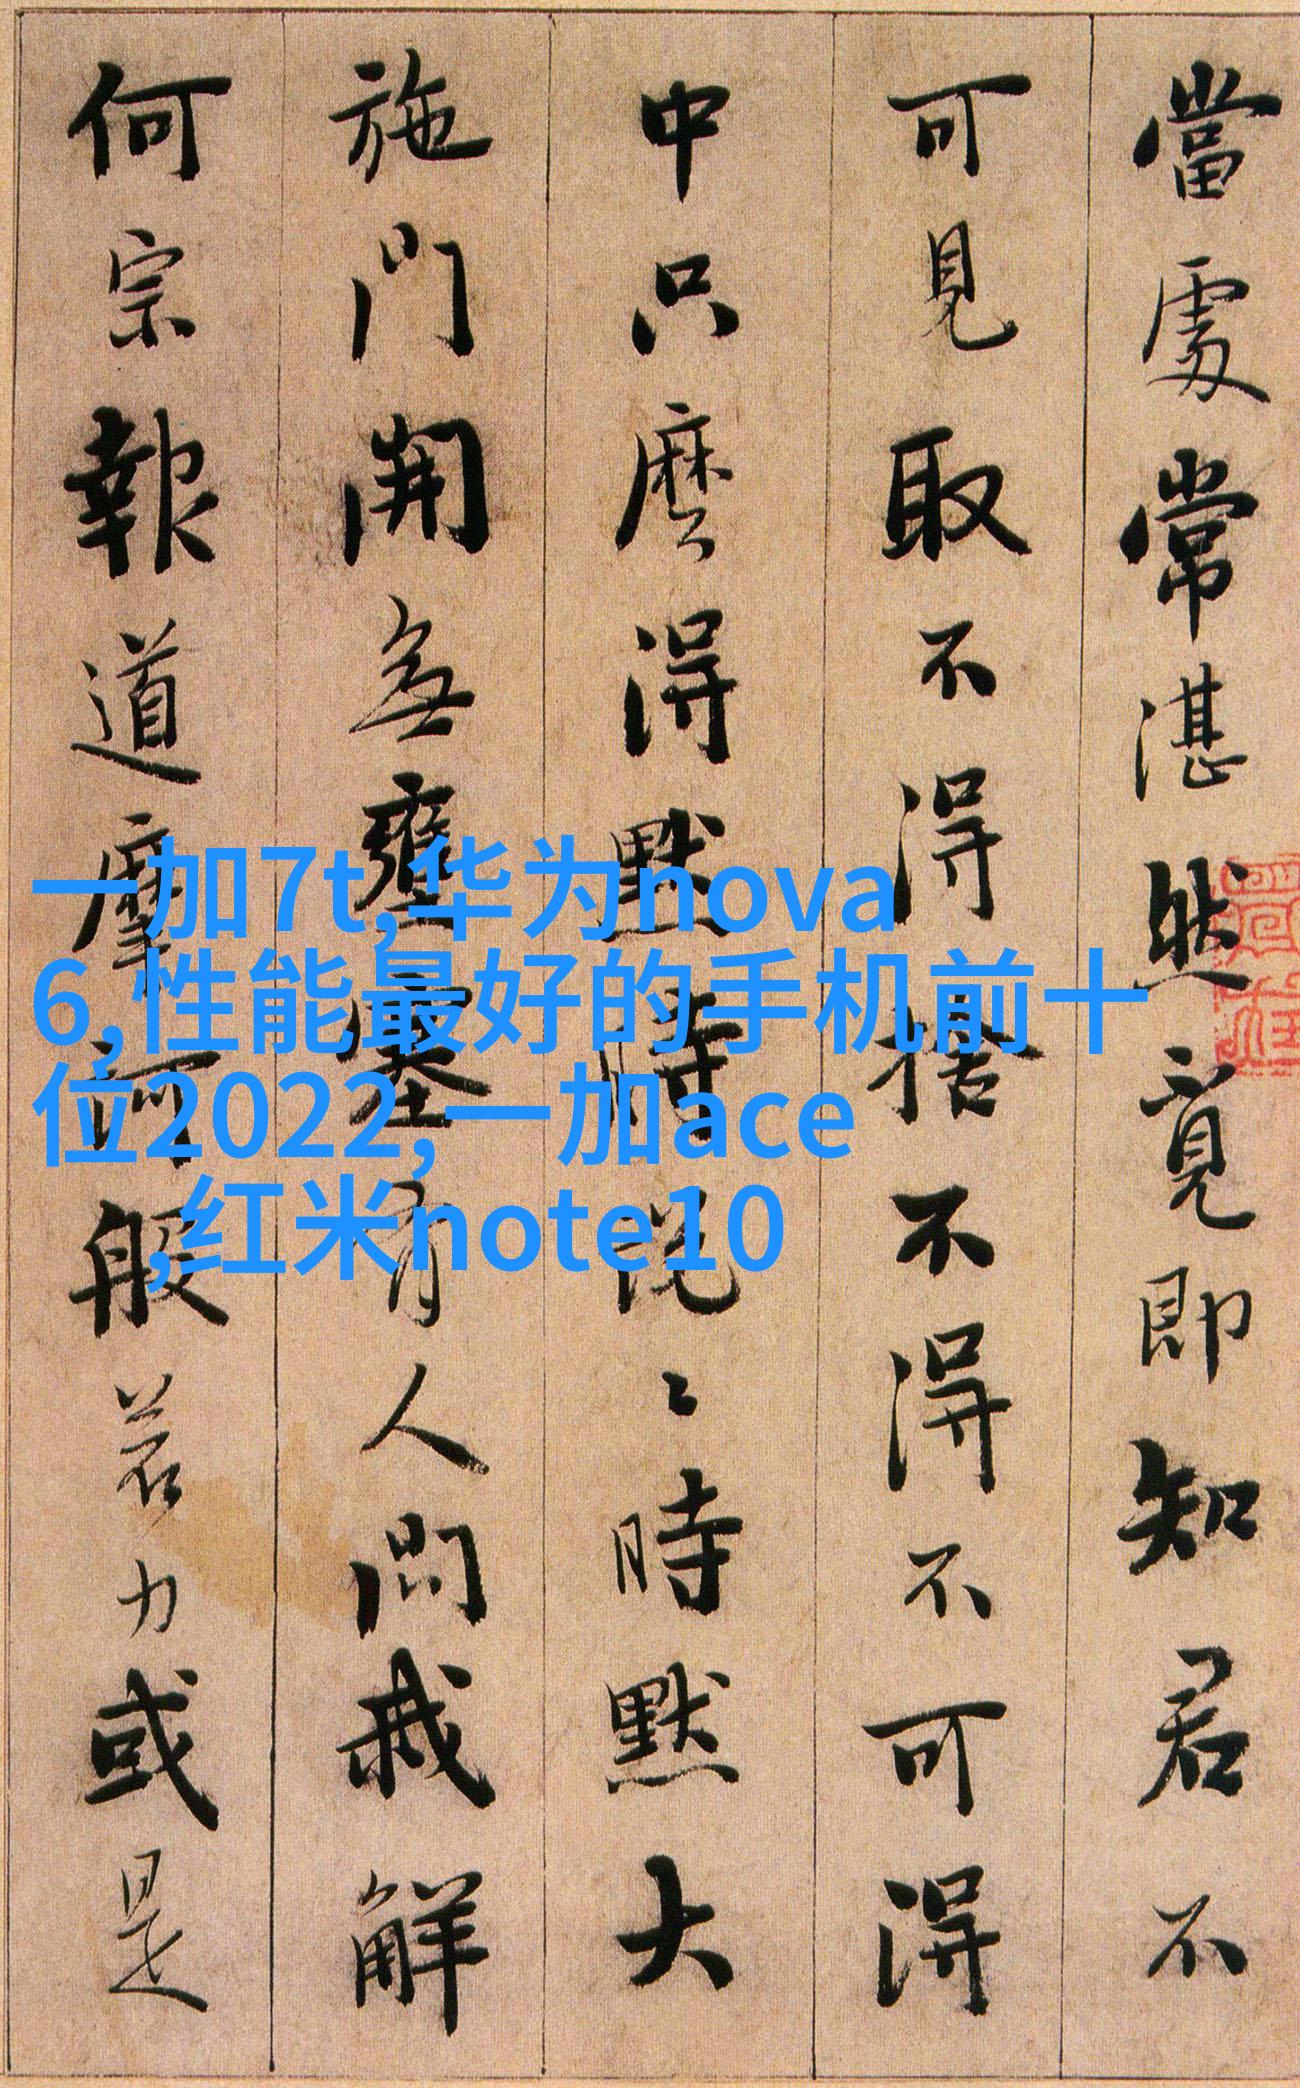 當處常湛然覓即知君不
可見取不得捨不得不可得
中只麼得默時說〻時默大
施門開無壅塞有人問我解
何宗報道摩訶般若力或是
一加7t,华为nova
6,性能最好的手机前十
位2022,一加ace
,红米note10